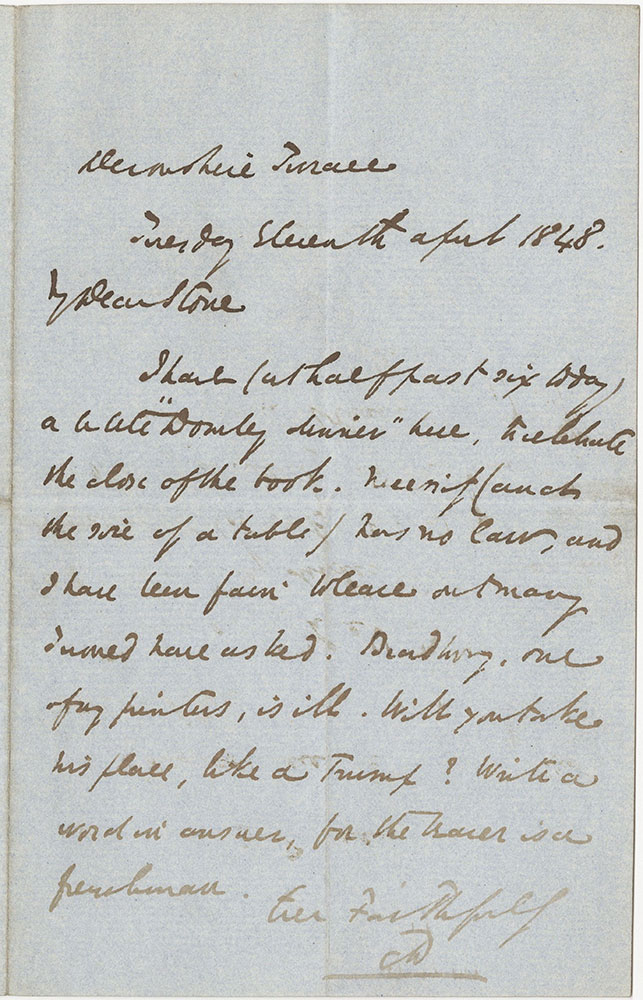 Devonshire Terrace
Tuesday Eleventh April 1848.
My Dear Stone
I have (at half past six today)
a little "Dombey dinner" here, to celebrate
the close of the book. Necessity (and
the size of a table) has no law, and
I have been fain to leave out many
I would have asked. Bradbury, one
of my printers, is ill. Will you take
his place, like a Trump? Write a
word in answer, for the bearer is a
frenchman.
Ever Faithfully
CD